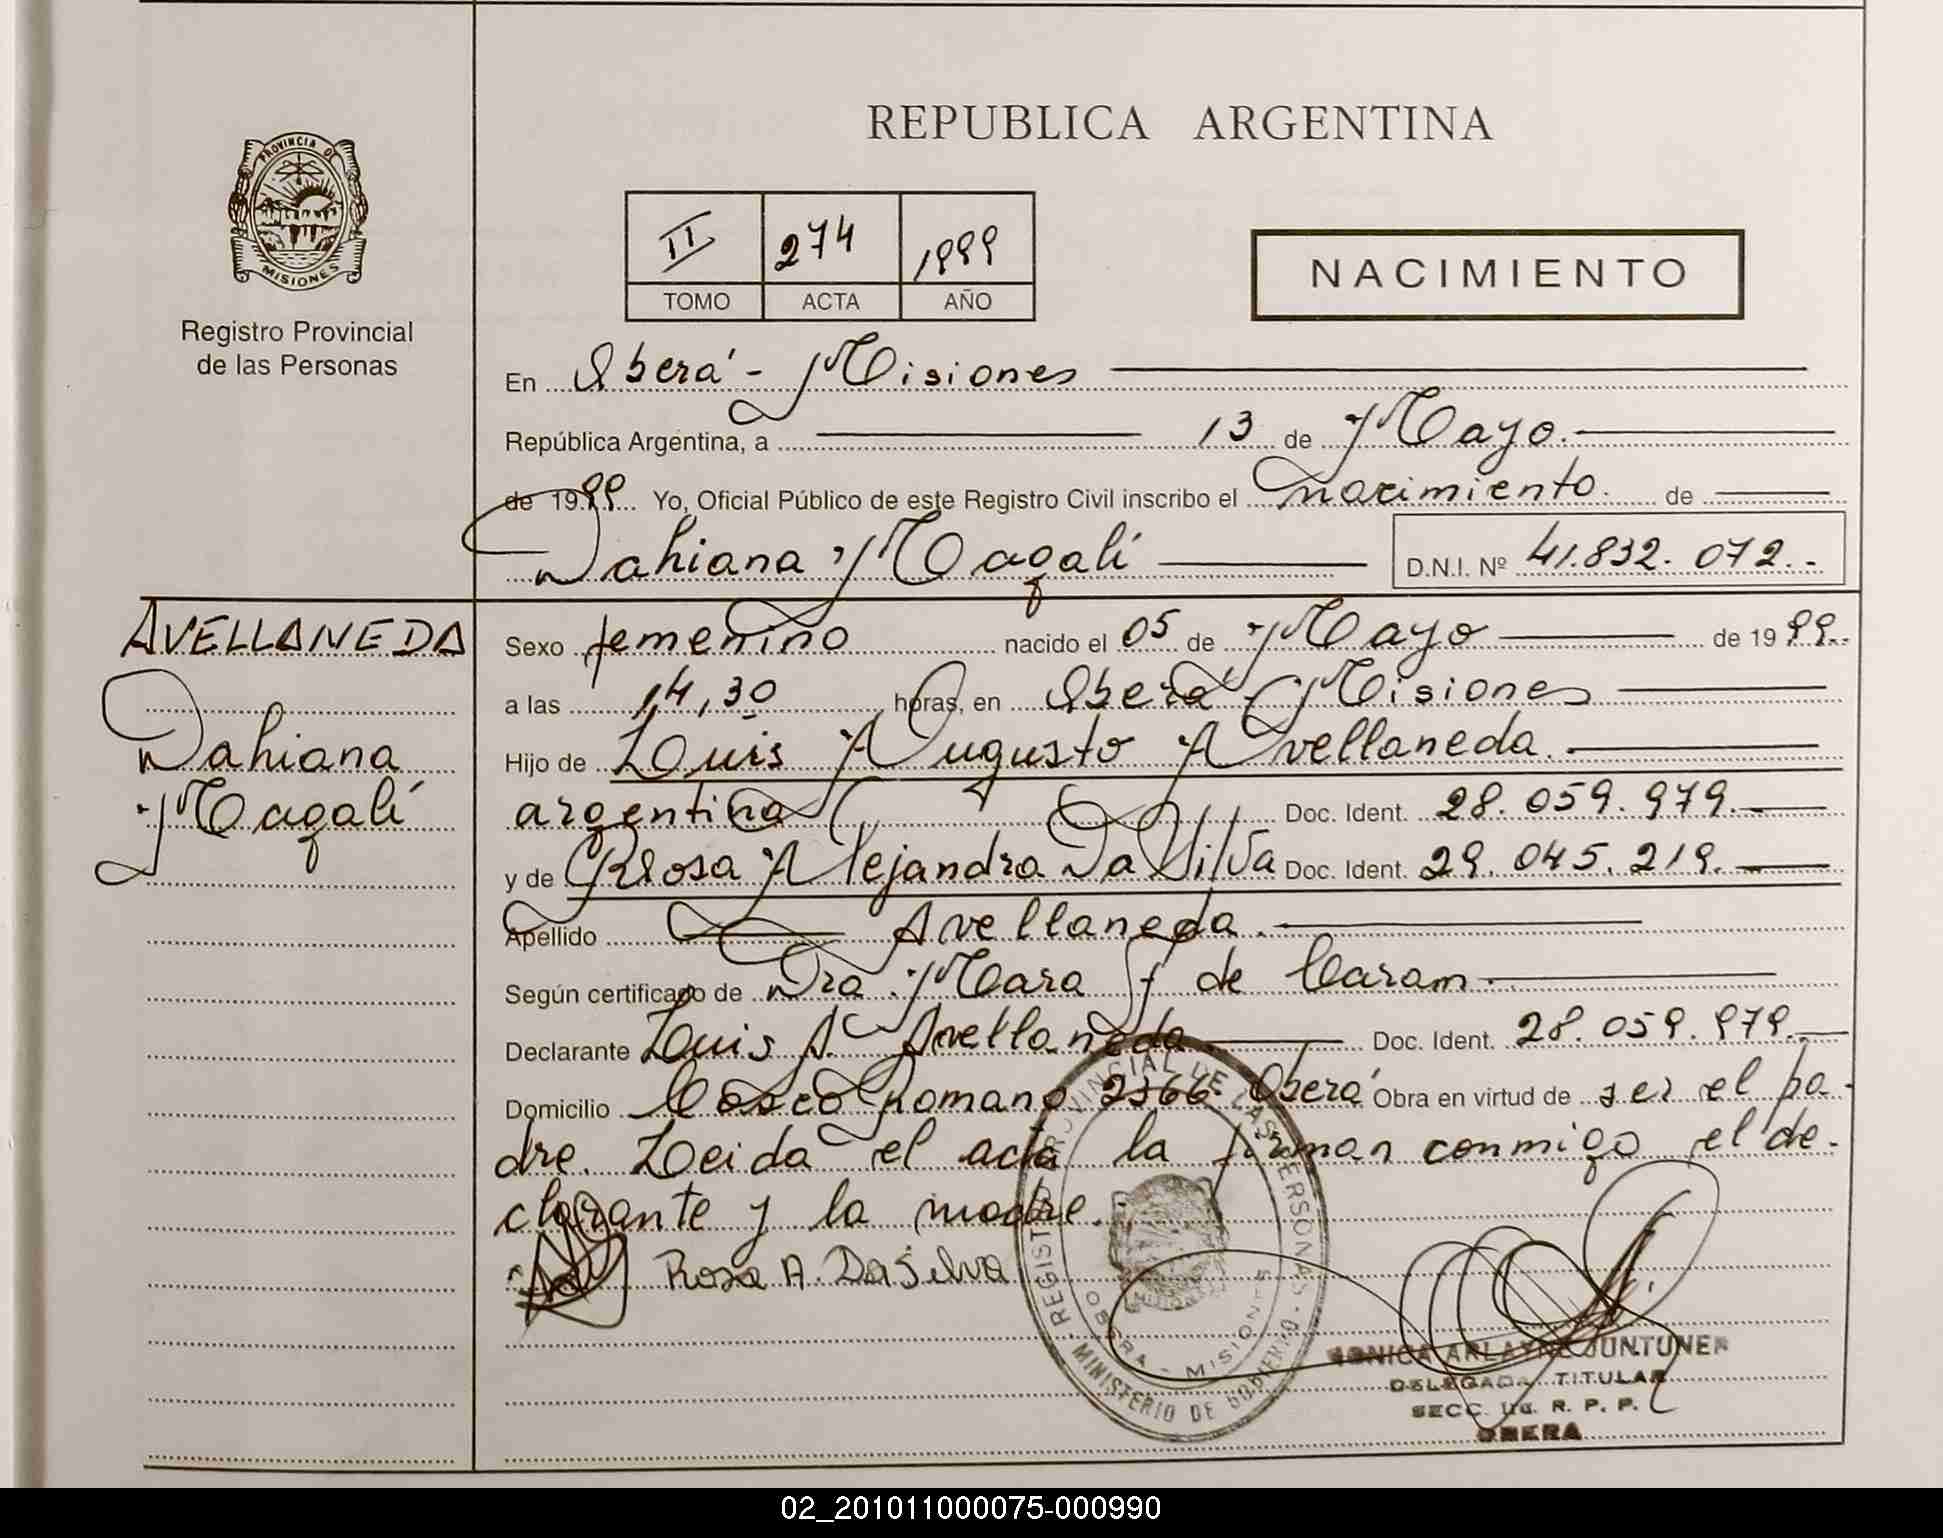 REPUBLICA ARGENTINA
PROVINCIA DE
MISIONES
Registro Provincial
de las Personas
II 274 1999
TOMO ACTA AÑO
NACIMIENTO
En Oberá - Misiones
República Argentina, a 13 de Mayo.
de 1999 Yo, Oficial Público de este Registro Civil inscribo el nacimiento. de
Dahiana Magalí D.N.I. Nº 41.832.072.-
AVELLANEDA
Dahiana
Magalí
Sexo femenino nacido el 05 de Mayo de 1999.
a las 14,30 horas, en Oberá - Misiones
Hijo de Luis Augusto Avellaneda.
argentina Doc. Ident. 28.059.979.
y de Rosa Alejandra Da Silva Doc. Ident. 29.045.219.
Apellido Avellaneda.
Según certificado de Dra. Mara de Caram
Declarante Luis A. Avellaneda Doc. Ident. 28.059.979.
Domicilio Romano 2366 Oberá Obra en virtud de ser el pa-
dre. Leida el acta la firman conmigo el de-
clarante y la madre.
Rosa A. Da Silva
REGISTRO PROVINCIAL DE LAS PERSONAS
OBERA - MISIONES
MINISTERIO DE GOBIERNO
MONICA ARLAYNE JUNTUNER
DELEGADA TITULAR
SECC. R. P. P.
OBERA
02_201011000075-000990